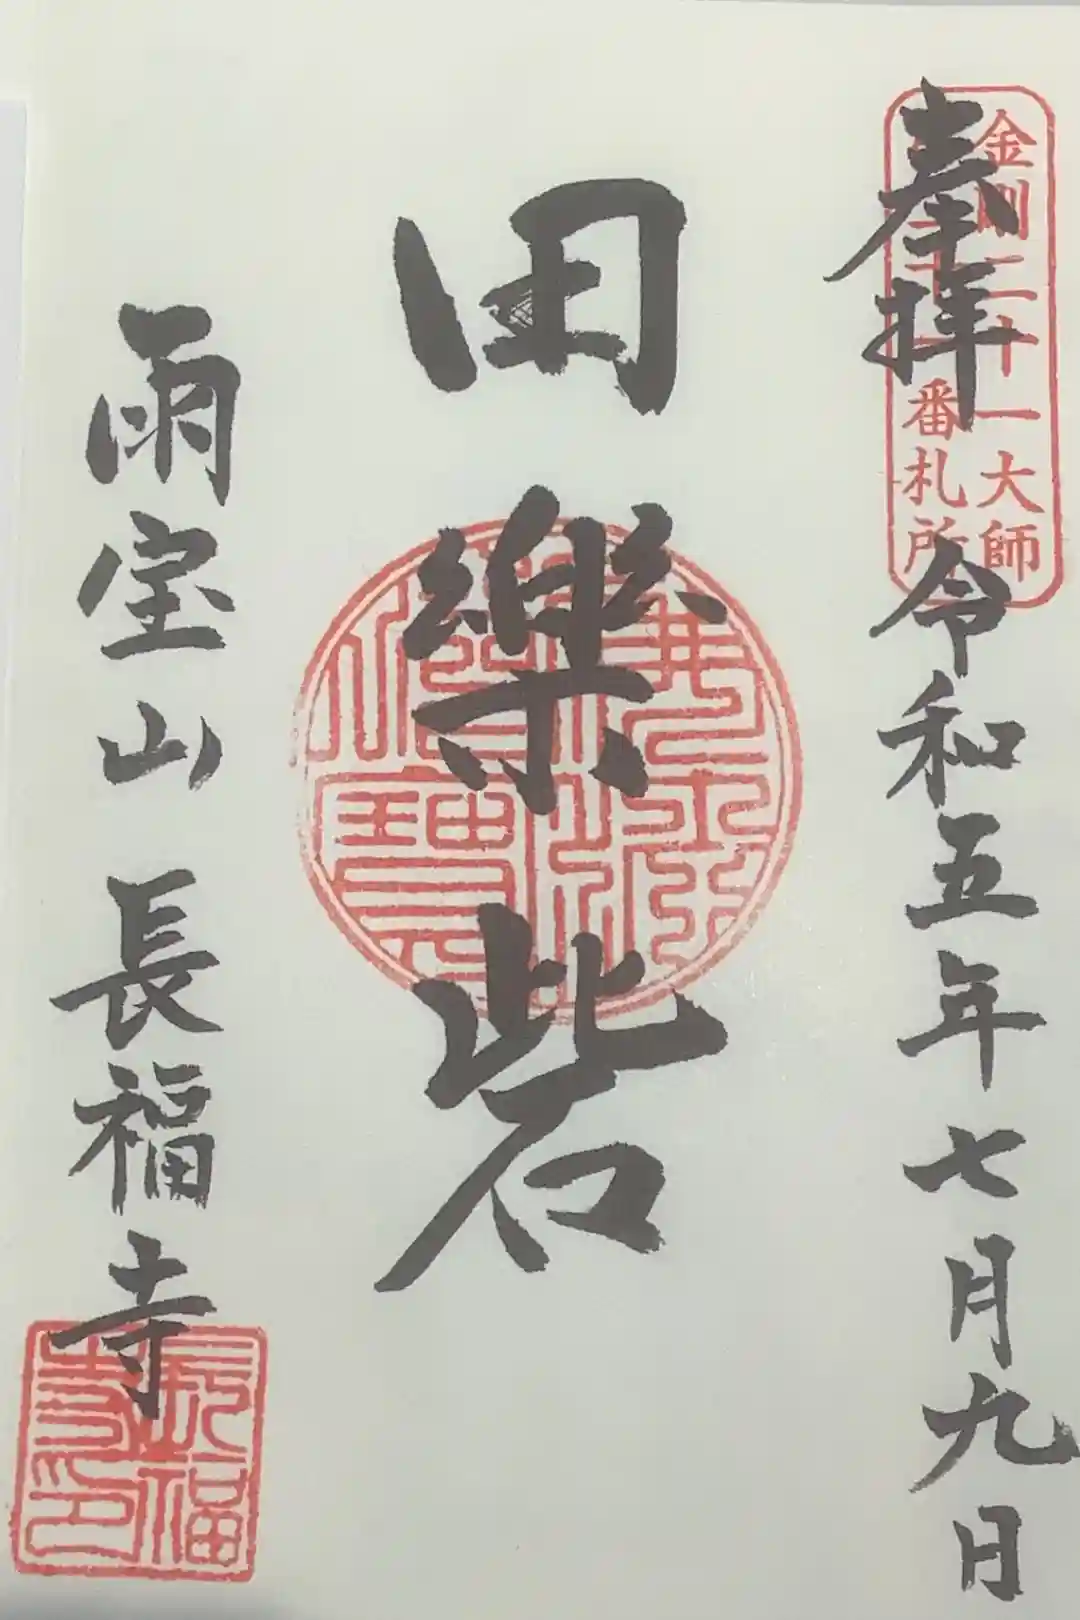 奉拝
金剛二十一大師
番札所
令和五年七月九日
田樂砦
雨宝山 長福寺
長福寺印